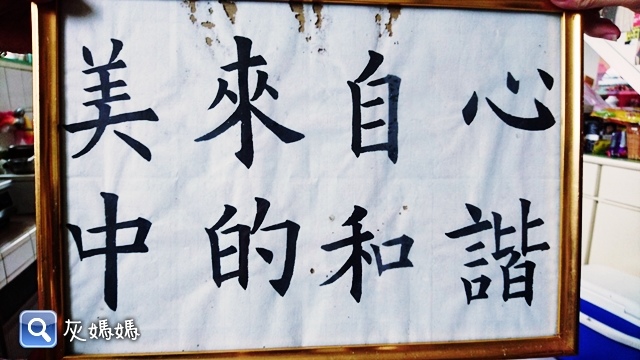 美來自心
中的和諧
灰媽媽